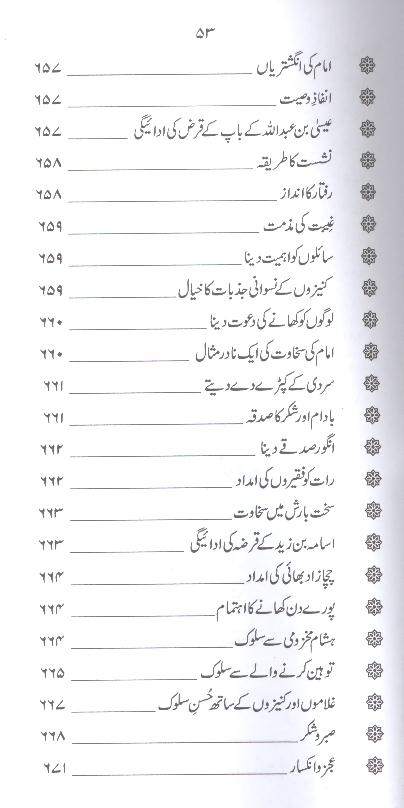 ۵۳
امام کی انگشتریاں ۶۵۷
انفاذِ وصیت ۶۵۷
عیسٰی بن عبداللہ کے باپ کے قرض کی ادائیگی ۶۵۷
نشست کا طریقہ ۶۵۸
رفتار کا انداز ۶۵۸
غیبت کی مذمت ۶۵۹
سائلوں کو اہمیت دینا ۶۵۹
کنیزوں کے نسوانی جذبات کا خیال ۶۵۹
لوگوں کو کھانے کی دعوت دینا ۶۶۰
امام کی سخاوت کی ایک نادر مثال ۶۶۰
سردی کے کپڑے دے دیتے ۶۶۱
بادام اور شکر کا صدقہ ۶۶۱
انگور صدقے دینا ۶۶۲
رات کو فقیروں کی امداد ۶۶۲
سخت بارش میں سخاوت ۶۶۳
اسامہ بن زید کے قرضہ کی ادائیگی ۶۶۳
چچازاد بھائی کی امداد ۶۶۴
پورے دن کھانے کا اہتمام ۶۶۴
ہشام مخزومی سے سلوک ۶۶۴
توہین کرنے والے سے سلوک ۶۶۵
غلاموں اور کنیزوں کے ساتھ حُسنِ سلوک ۶۶۷
صبر و شکر ۶۶۸
عجز و انکسار ۶۷۱